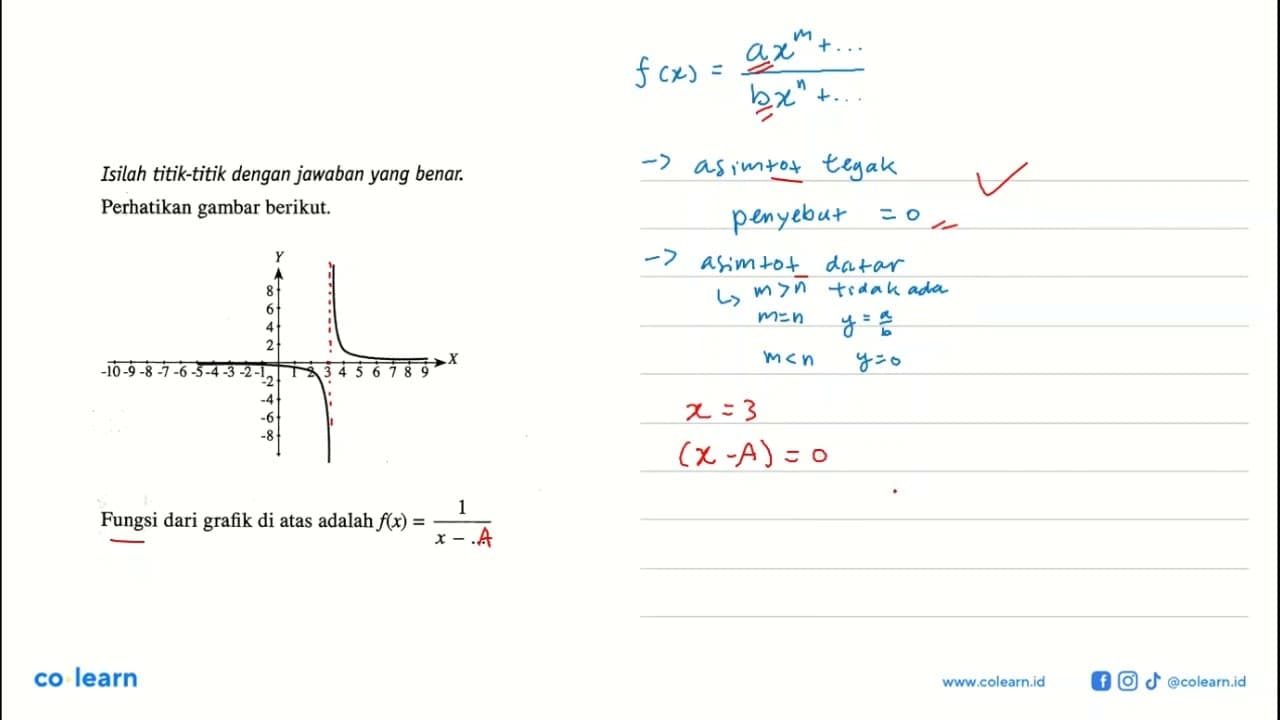 Isilah titik-titik dengan jawaban yang benar.
Perhatikan gambar berikut.
Y
8
6
4
2
-10 -9 -8 -7 -6 -5 -4 -3 -2 -1 1 2 3 4 5 6 7 8 9 X
-2
-4
-6
-8
Fungsi dari grafik di atas adalah f(x) = 1 / x - .A
f(x) = ax^m + ... / bx^n + ...
-> asimtot tegak
penyebut = 0
-> asimtot datar
↳ m>n tidak ada
m=n y = a/b
m<n y=0
x = 3
(x - A) = 0
co learn
www.colearn.id @colearn.id